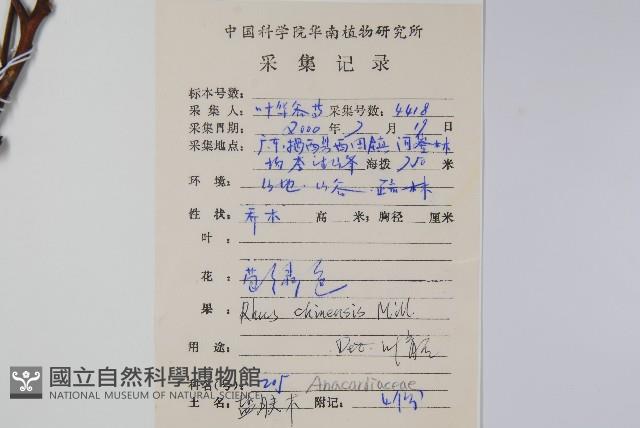 中国科学院华南植物研究所
采集记录
标本号数:
采集人: 叶华谷 采集号数: 4418
采集日期: 2000 年 7 月 19 日
采集地点: 广东·揭西县西田镇 河婆林
场 李 海拔 750 米
环境: 山地·山谷·疏林
性状: 乔木 高 米; 胸径 厘米
叶:
花: 色
果: Rhus chinensis Mill.
用途: Det. 叶
科名(号): 205 Anacardiaceae
土名: 盐肤木 附记: 4份
國立自然科學博物館
NATIONAL MUSEUM OF NATURAL SCIENCE